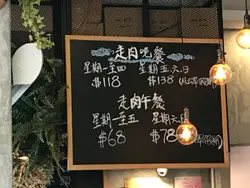 走肉晚餐
星期一至四 星期五.六.日
$118 $138
走肉午餐
星期一至五 星期六.日
$68 $78